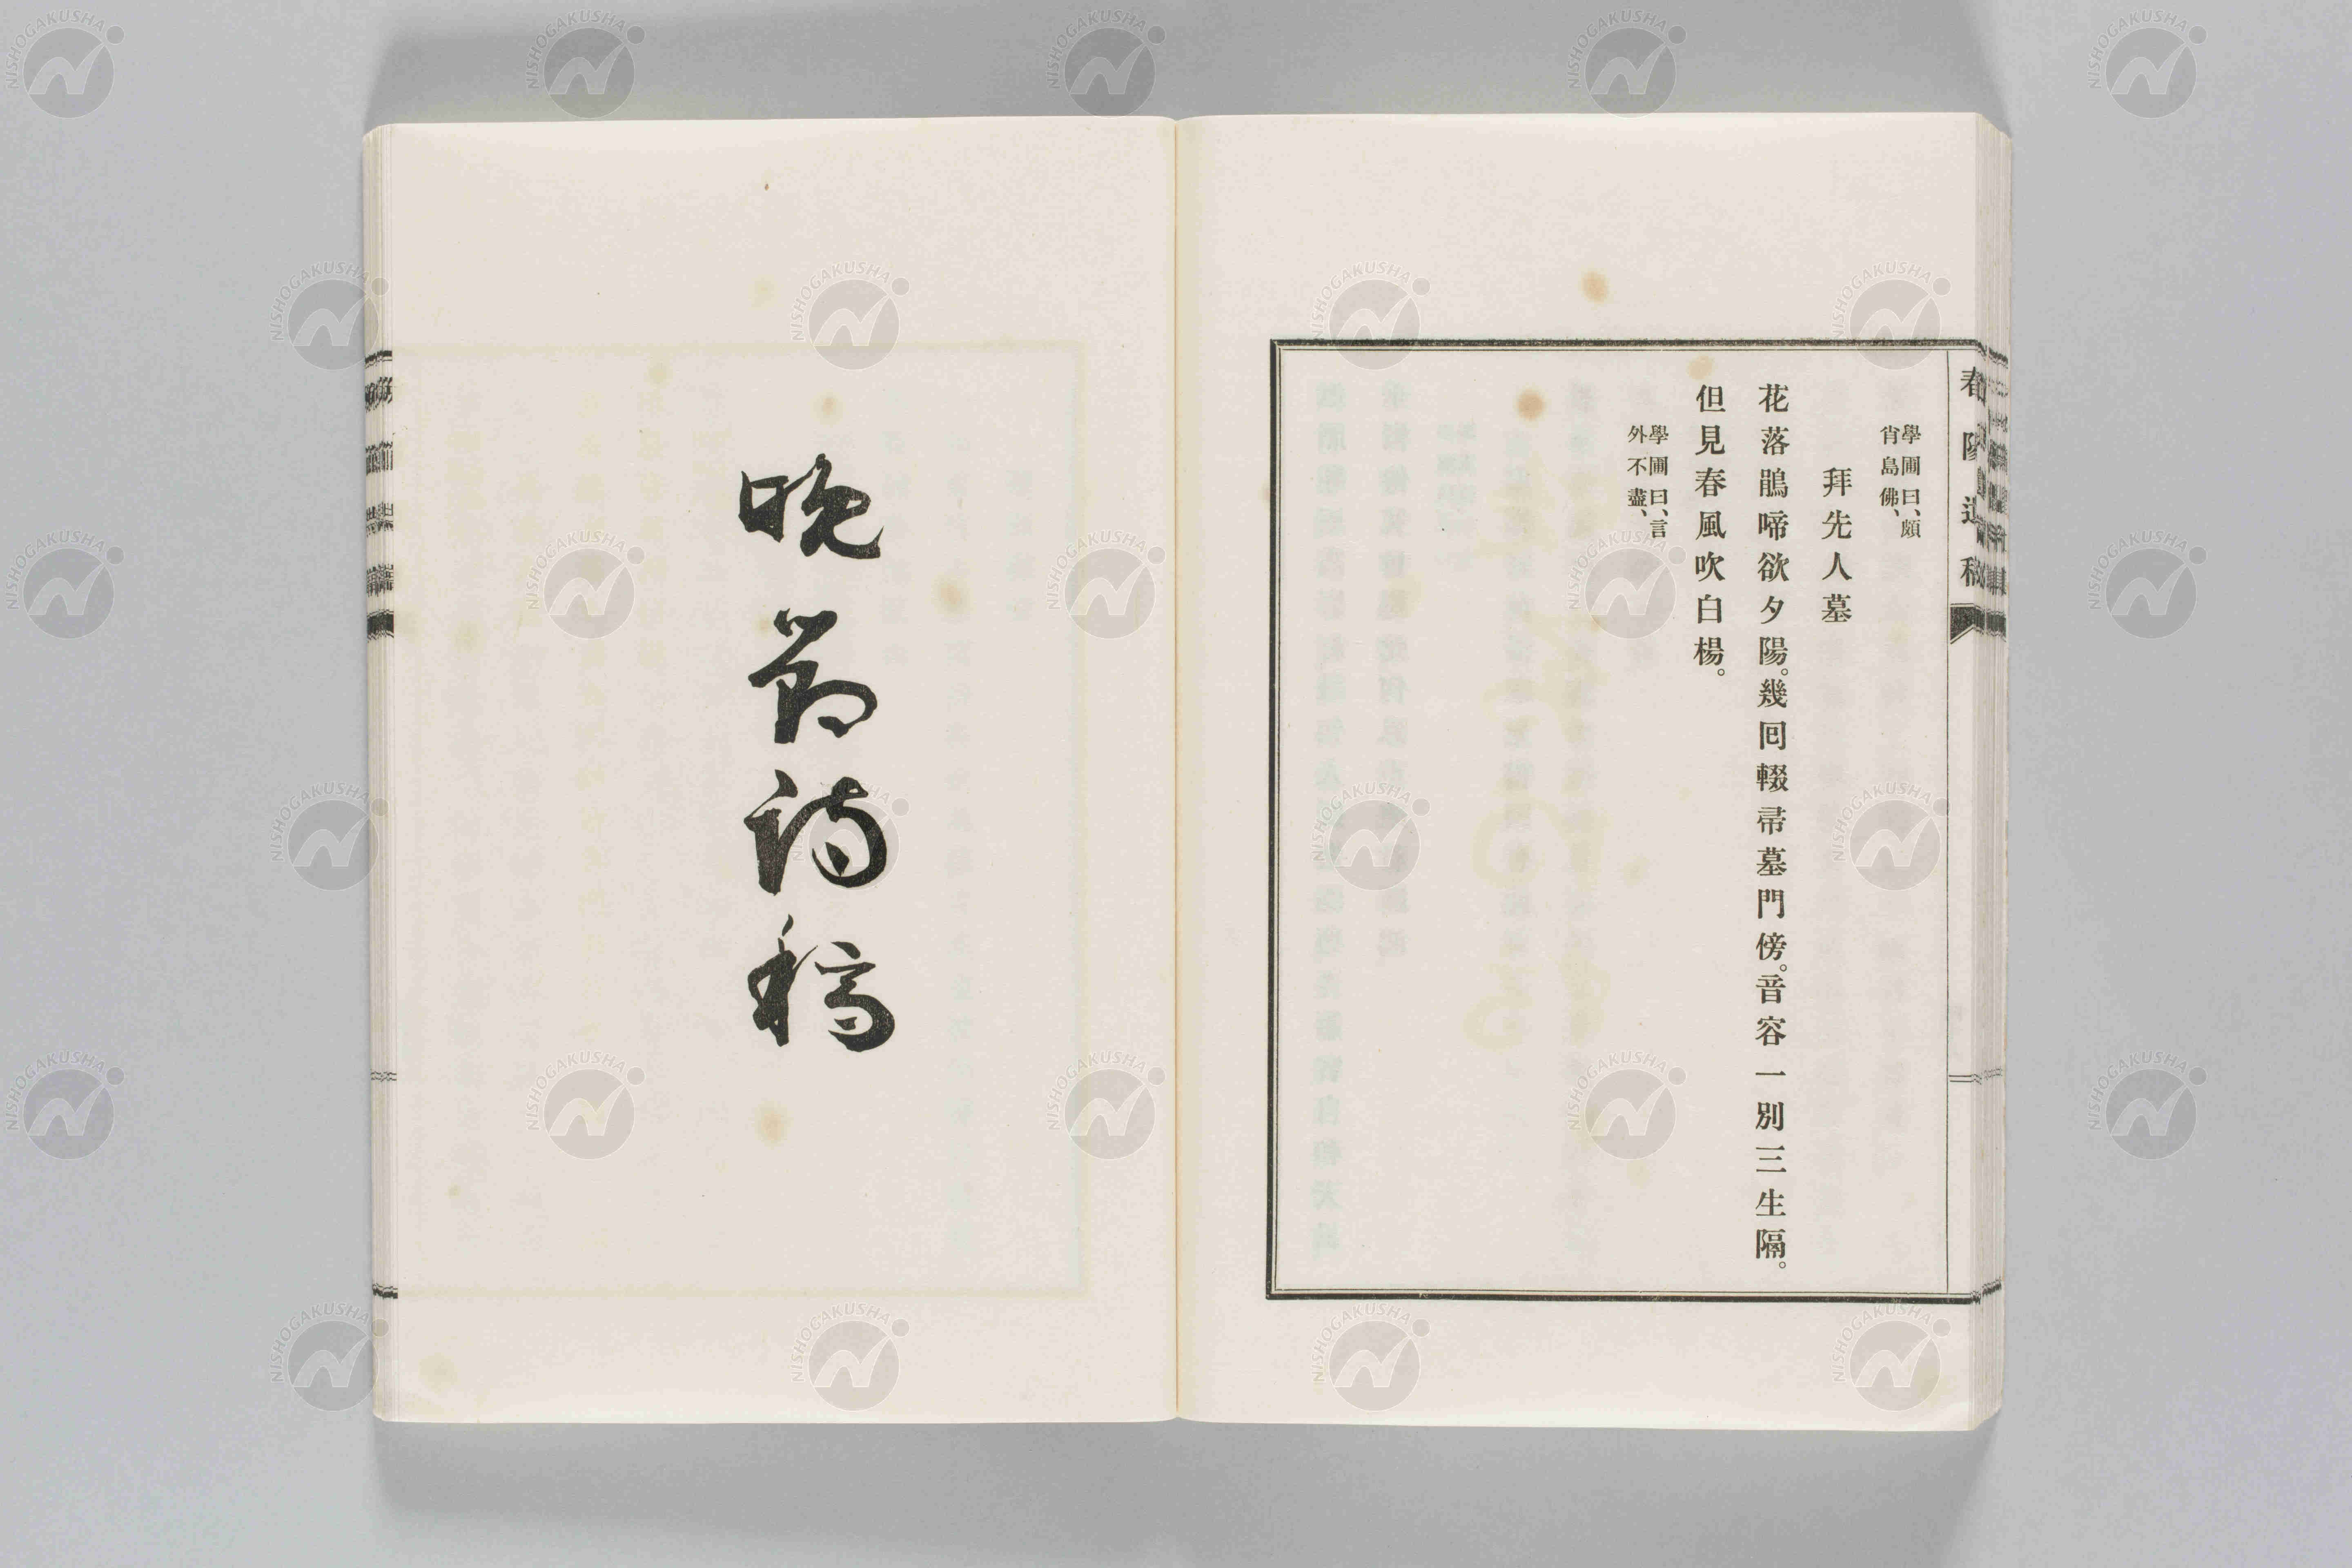 學圃曰、頗
肖島佛、
拜先人墓
花落鵑啼欲夕陽。幾回輟帚墓門傍。音容一別三生隔。
但見春風吹白楊。
學圃曰、言
外不盡、
晚翠詩稿
NISHOGAKUSHA